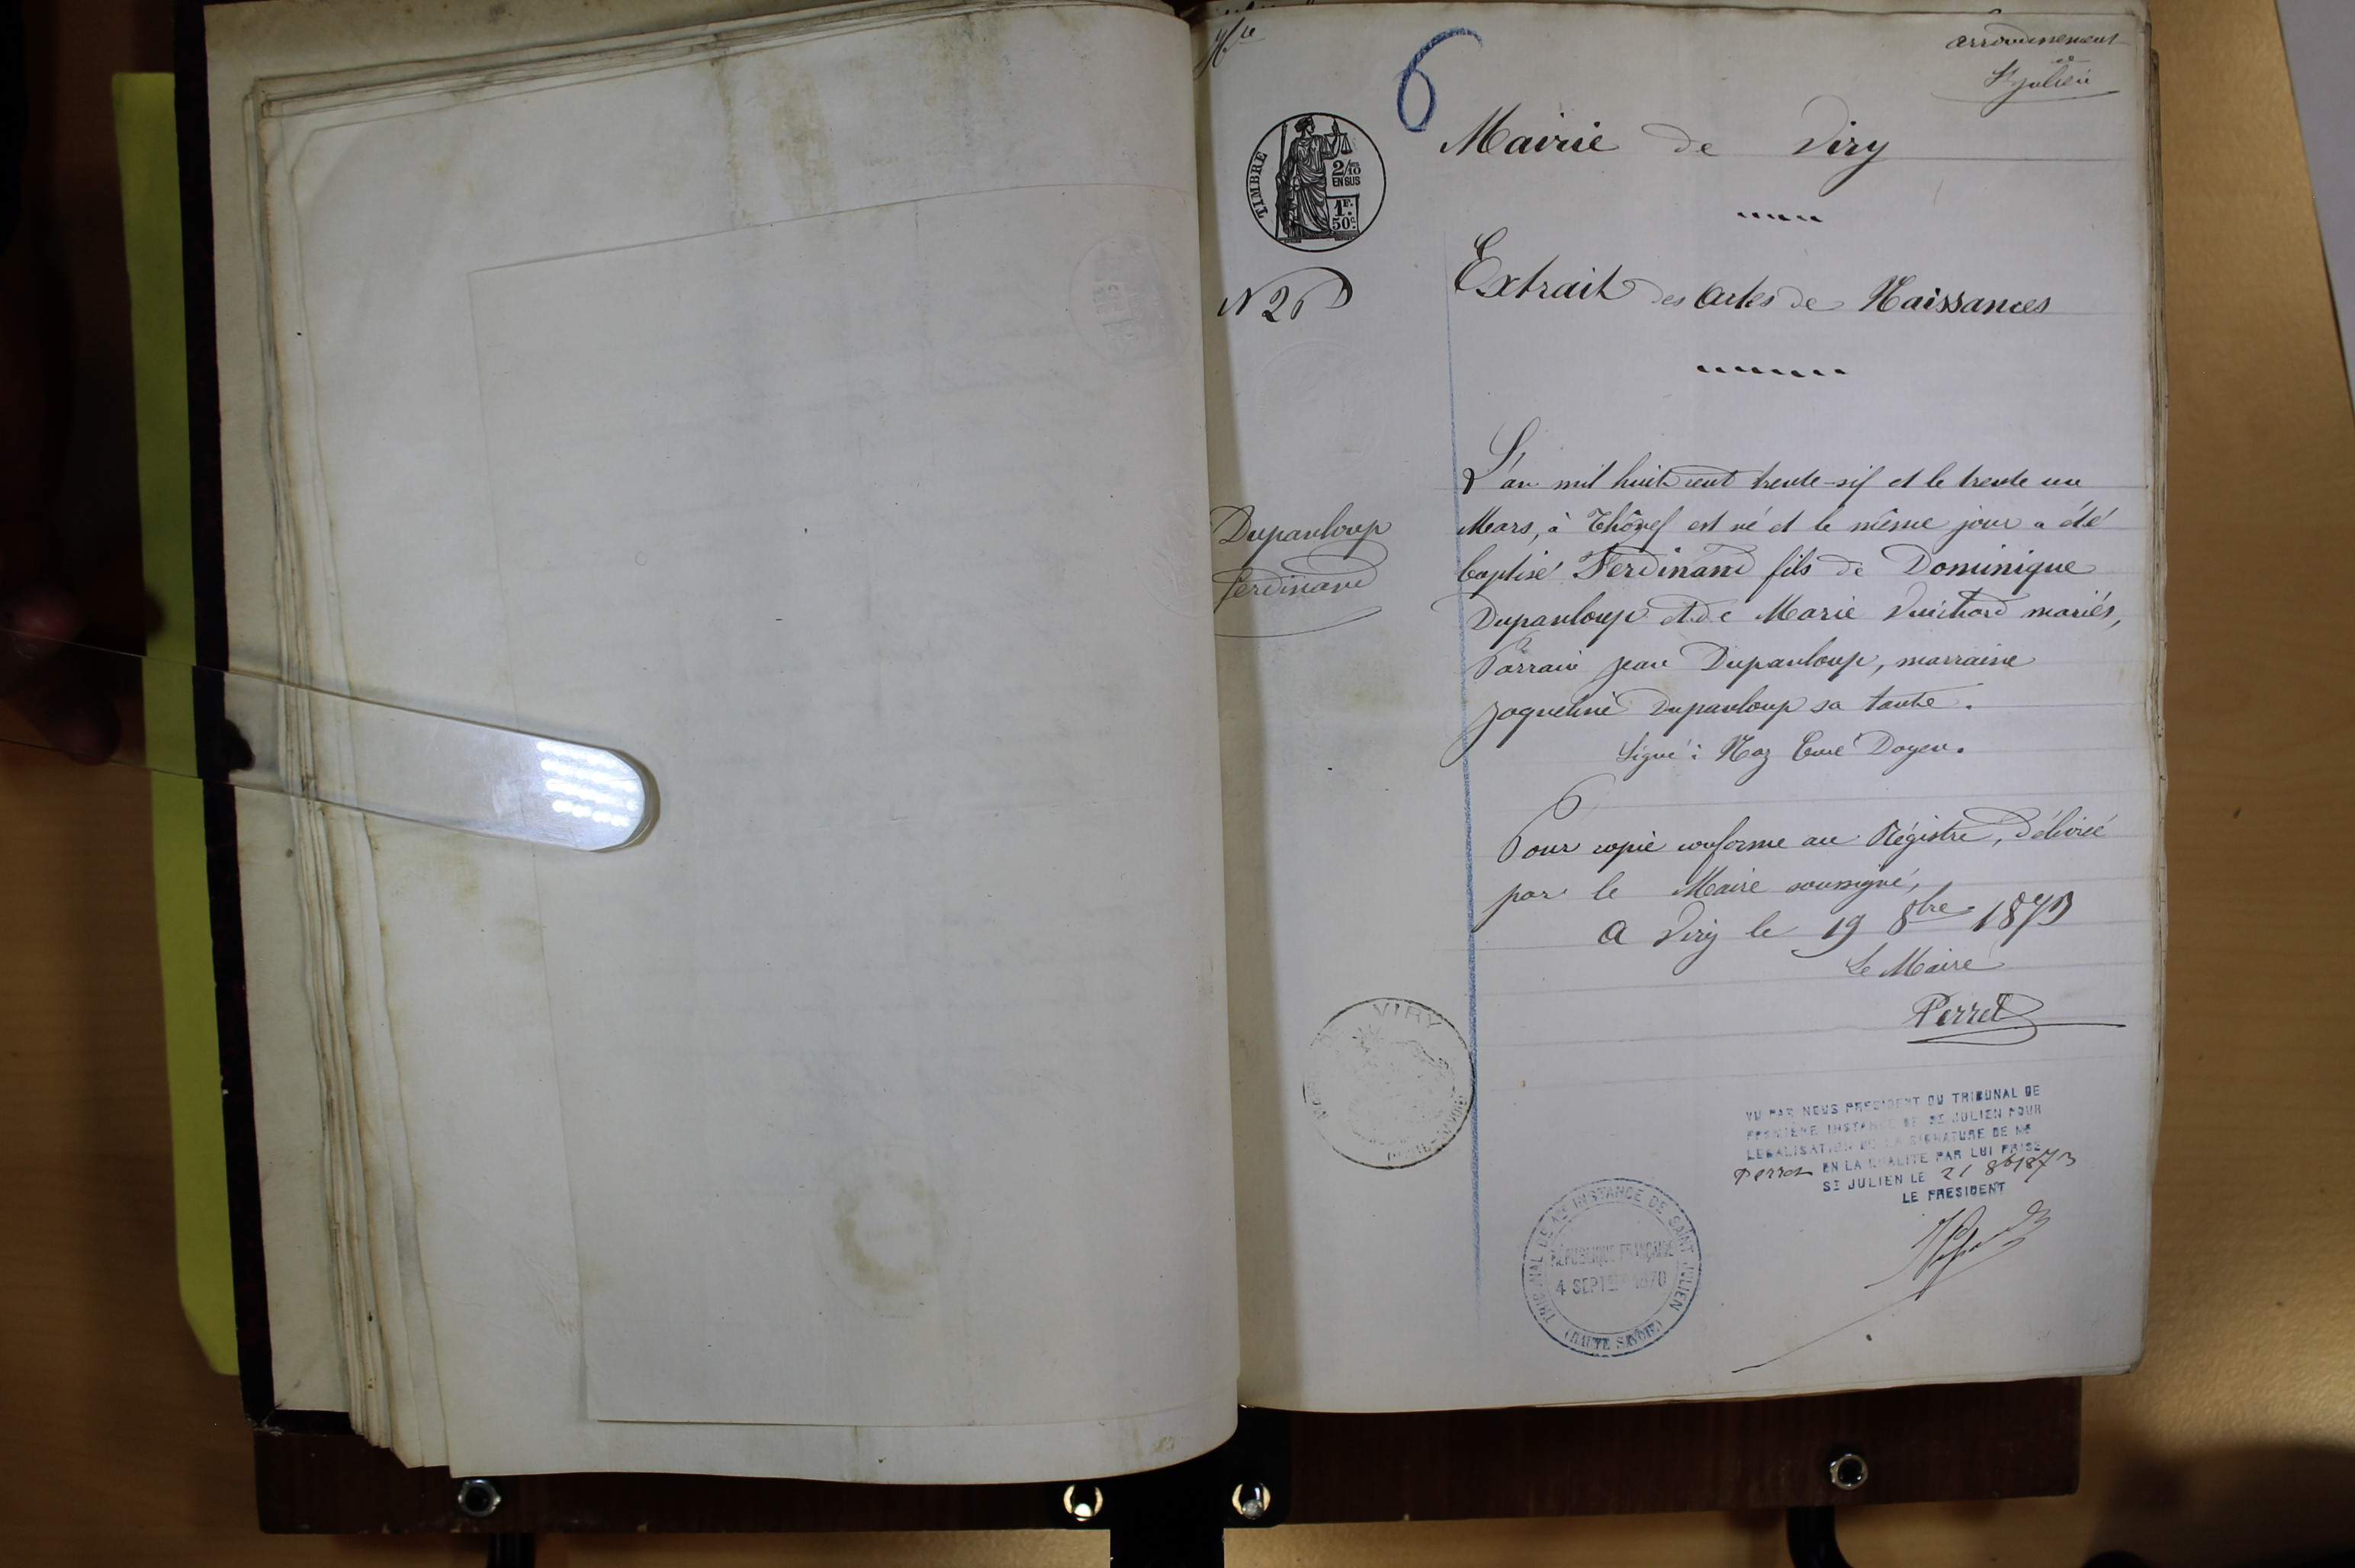 Hte
6
arrondissement
de
St Julien
Mairie de Viry
TIMBRE
2/10
EN SUS
1F.
50c
N 26
Extrait des Actes de Naissances
L'an mil huit cent trente-six et le trente un
Mars, à Thônex est né et le même jour a été
baptisé Ferdinand fils de Dominique
Dupanloup et de Marie Vuichard mariés,
Parrain Jean Dupanloup, marraine
Jaqueline Dupanloup sa tante.
Signé: Noz Curé Doyen.
Dupanloup
Ferdinand
Pour copie conforme au Régistre, délivrée
par le Maire soussigné,
A Viry le 19 8bre 1873
Le Maire
Perret
DE VIRY
VU PAR NOUS PRESIDENT DU TRIBUNAL DE
PREMIERE INSTANCE DE ST JULIEN POUR
LEGALISATION DE LA SIGNATURE DE MR
Perret EN LA QUALITE PAR LUI PRISE
ST JULIEN LE 21 8b 1873
LE PRESIDENT
TRIBUNAL DE 1RE INSTANCE DE SAINT JULIEN
RÉPUBLIQUE FRANÇAISE
4 SEPTBRE 1870
(HAUTE SAVOIE)